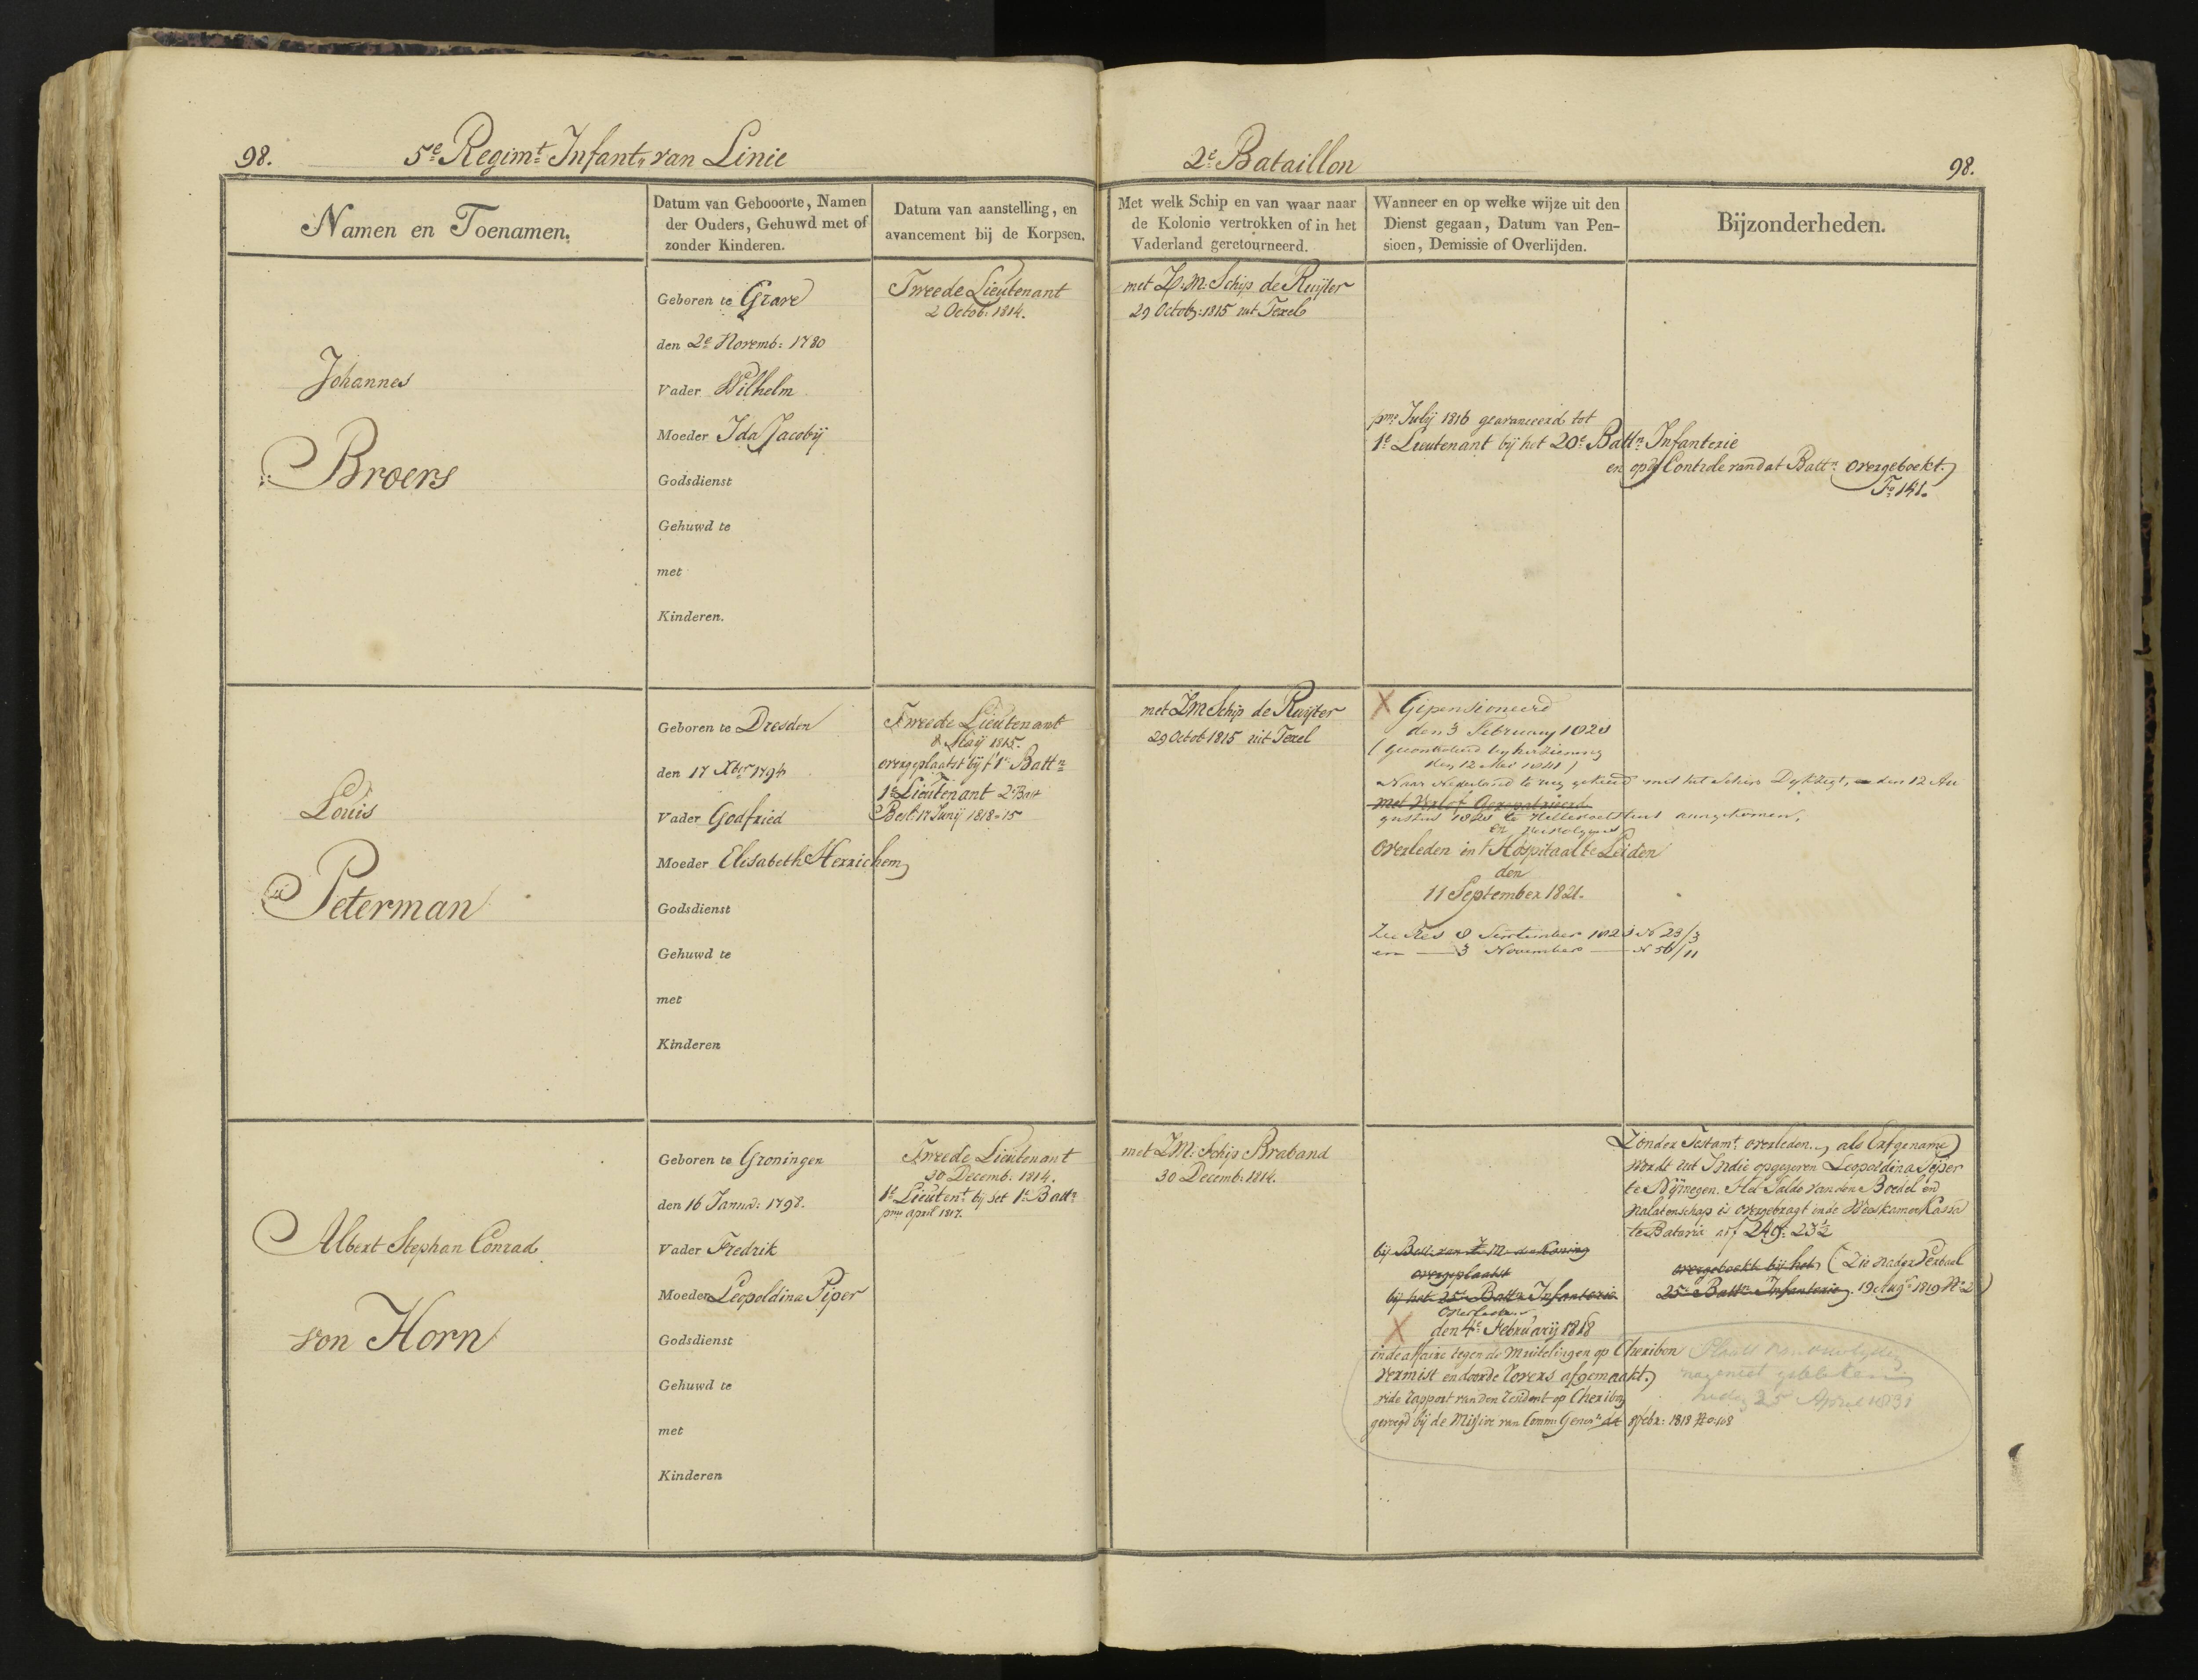 98.
5e Regimt Infantn van Linie
2e Bataillon
98.
Namen en Toenamen.
Datum van Gebooorte, Namen
der Ouders, Gehuwd met of
zonder Kinderen.
Datum van aanstelling, en
avancement bij de Korpsen.
Met welk Schip en van waar naar
de Kolonie vertrokken of in het
Vaderland geretourneerd.
Wanneer en op welke wijze uit den
Dienst gegaan, Datum van Pen-
sioen, Demissie of Overlijden.
Bijzonderheden.
Johannes
Broers
Geboren te Grave
den 2e Novemb: 1780
Vader Wilhelm
Moeder Ida Jacobij
Godsdienst
Gehuwd te
met
Kinderen.
Tweede Lieutenant
2 Octob: 1814.
met Z:M: Schip de Ruijter
29 Octob: 1815 uit Texel
pmo Julij 1816 geavanceerd tot
1e Lieutenant bij het 20e Battn Infanterie
en op de Controle van dat Battn overgeboekt.
Fo 141.
Louis
Peterman
Geboren te Dresden
den 17 Xber 1794
Vader Godfried
Moeder Elisabeth Herrichem
Godsdienst
Gehuwd te
met
Kinderen
Tweede Lieutenant
8 Maij 1815.
overgeplaatst bij 't 1e Battn
1e Lieutenant 2e Batt
Besl: 17 Junij 1818 - 15
met ZM Schip de Ruijter
29 Octob 1815 uit Texel
X Gepensioneerd
den 3 February 1821
den 12 Mei 1841)
Naar Nederland te rug gekeerd met het Schip Dijkzigt, den 12 Au
met Verlof Gerepatrieerd
gustus 1821 te Hellevoetsluis aangekomen,
en vervolgens
Overleden in 't Hospitaal te Leiden
den
11 September 1821.
Zie Res 8 September 1821 N 23/3
en — 3 November — N 56/11
Albert Stephan Conrad
von Horn
Geboren te Groningen
den 16 Januu: 1798.
Vader Fredrik
Moeder Leopoldina Piper
Godsdienst
Gehuwd te
met
Kinderen
Tweede Lieutenant
30 Decemb: 1814.
1e Lieutent bij het 1e Battn
pmo april 1817.
met ZM: Schip Braband
30 Decemb: 1814.
bij Besl: van Z:M: den Koning
overgeplaatst
bij het 25e Battn Infanterie
Overleden
X den 4e Februarij 1818
in de affaire tegen de Muitelingen op Cheribon
vermist en door de Rovers afgemaakt.
vide Rapport van den Resident op Cheribon
gevoegd bij de Missive van Comm: Genern dd 8 febr: 1818 No 108
Zonder Testamt overleden, als Erfgename
wordt uit Indie opgegeven Leopoldina Piper
te Nijmegen. Het Saldo van den Boedel en
Nalatenschap is overgebragt in de Weeskamer Kassa
te Batavia a ƒ 249: 23½
overgeboekt bij het (Zie nader Verbaal
25e Battn Infanterie 19 Augs 1819 No 2)
Plaats van overlijden
nog niet gebleken
heden 25 April 1831